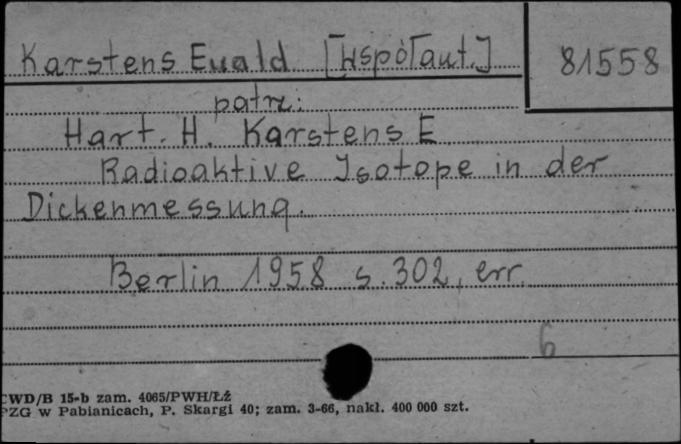 Karstens Ewald [Współaut.] 81558
patrz:
Hart. H. Karstens E.
Radioaktive Isotope in der
Dickenmessung.
Berlin 1958 s. 302, err.
6
CWD/B 15-b zam. 4065/PWH/Łź
PZG w Pabianicach, P. Skargi 40; zam. 3-66, nakł. 400 000 szt.